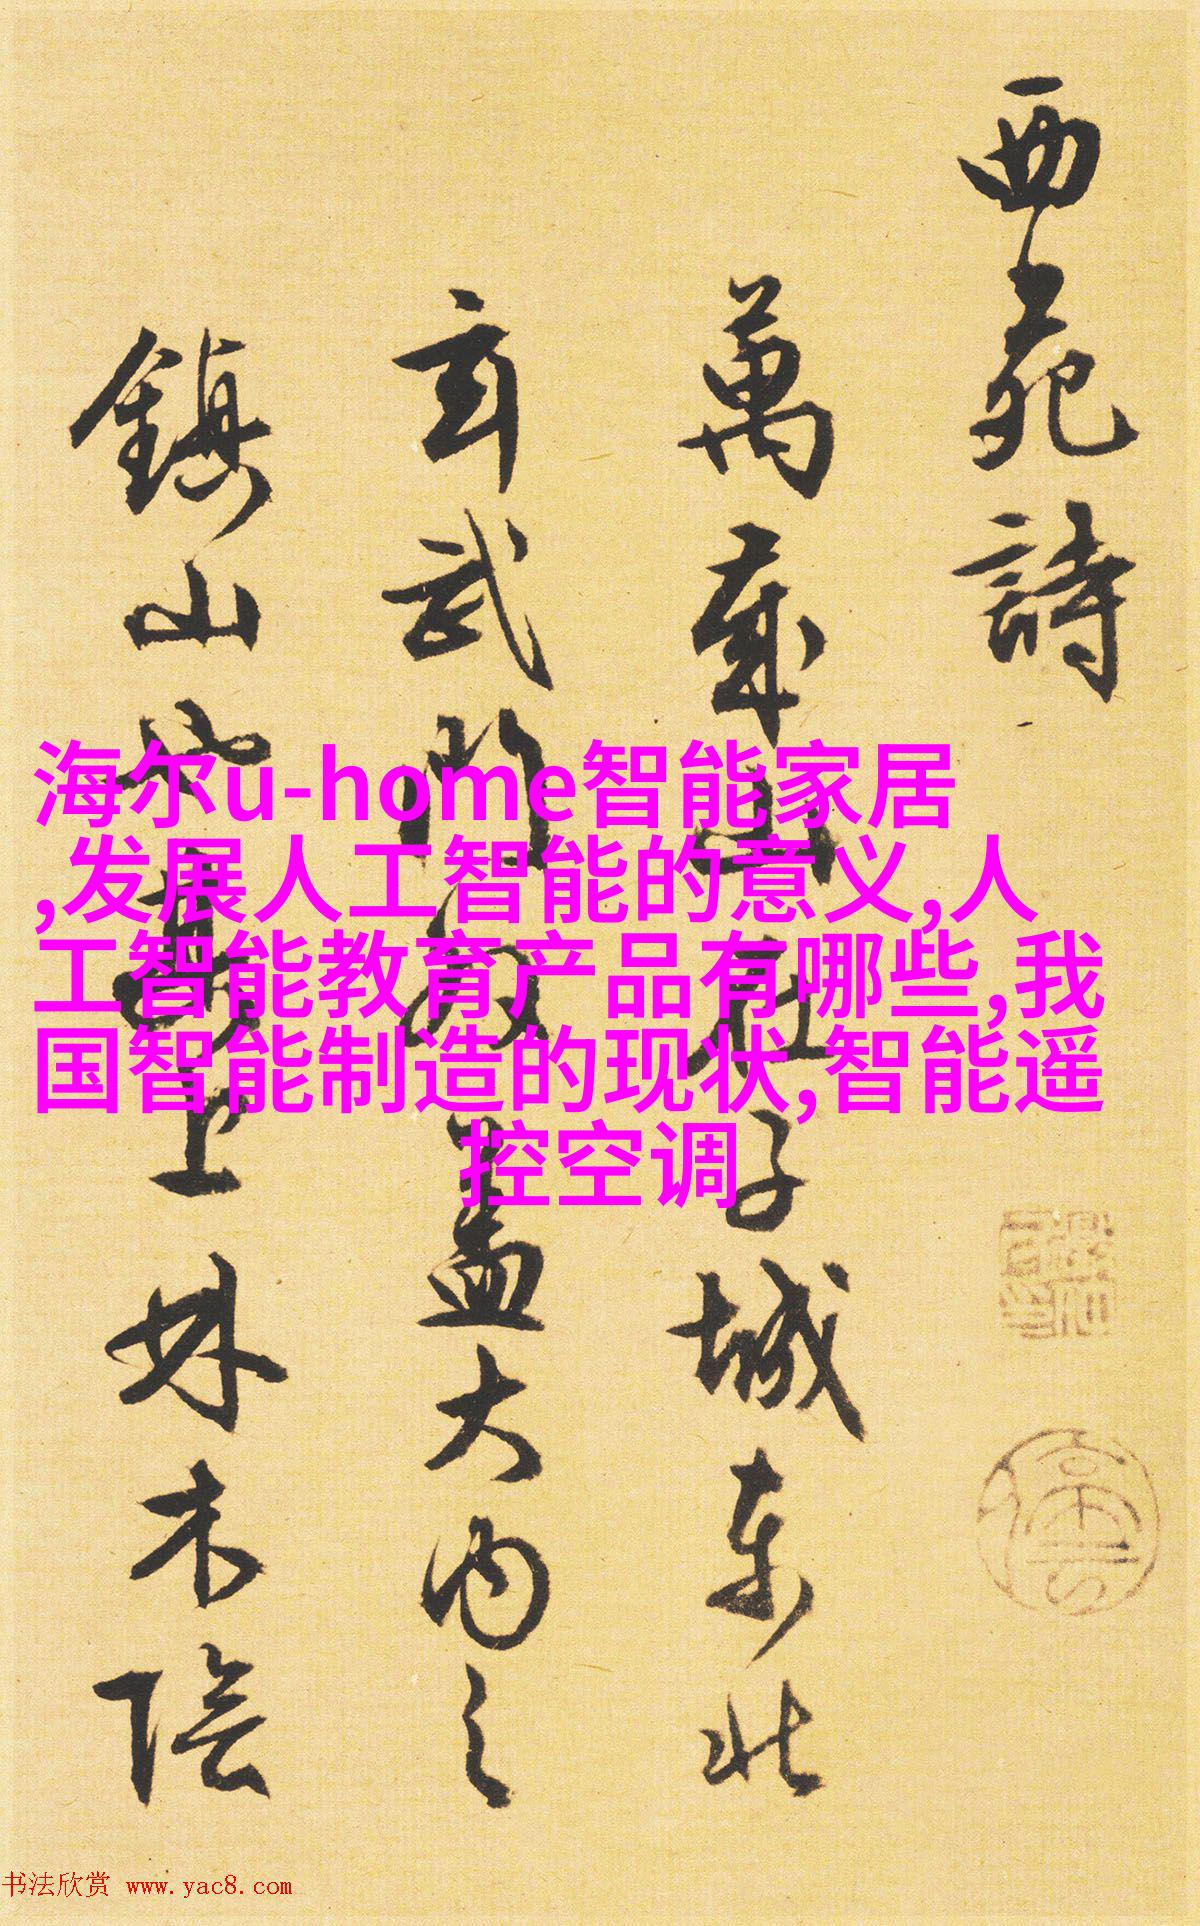 西苑詩
萬歲山在子城東北
玄武門外蓋大內之
鎮山也其上林木陰
海尔u-home智能家居
,发展人工智能的意义,人
工智能教育产品有哪些,我
国智能制造的现状,智能遥
控空调
书法欣赏 www.yac8.com